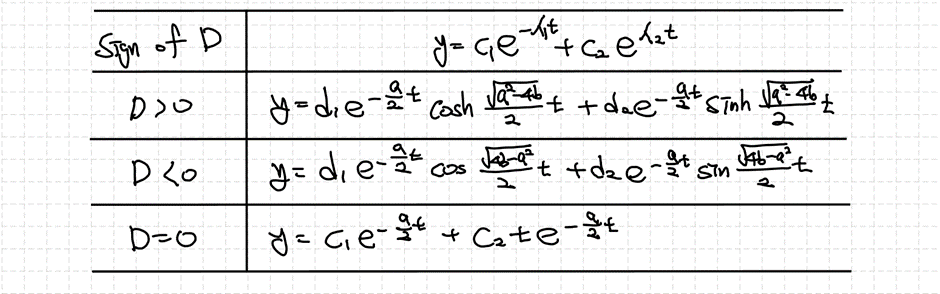 Sign of D y = c₁e^{-λ₁t} + c₂e^{λ₂t}
D>0 y = d₁e^{-\frac{a}{2}t} cosh \frac{\sqrt{a²-4b}}{2}t + d₂e^{-\frac{a}{2}t} sinh \frac{\sqrt{a²-4b}}{2}t
D<0 y = d₁e^{-\frac{a}{2}t} cos \frac{\sqrt{4b-a²}}{2}t + d₂e^{-\frac{a}{2}t} sin \frac{\sqrt{4b-a²}}{2}t
D=0 y = c₁e^{-\frac{a}{2}t} + c₂te^{-\frac{a}{2}t}